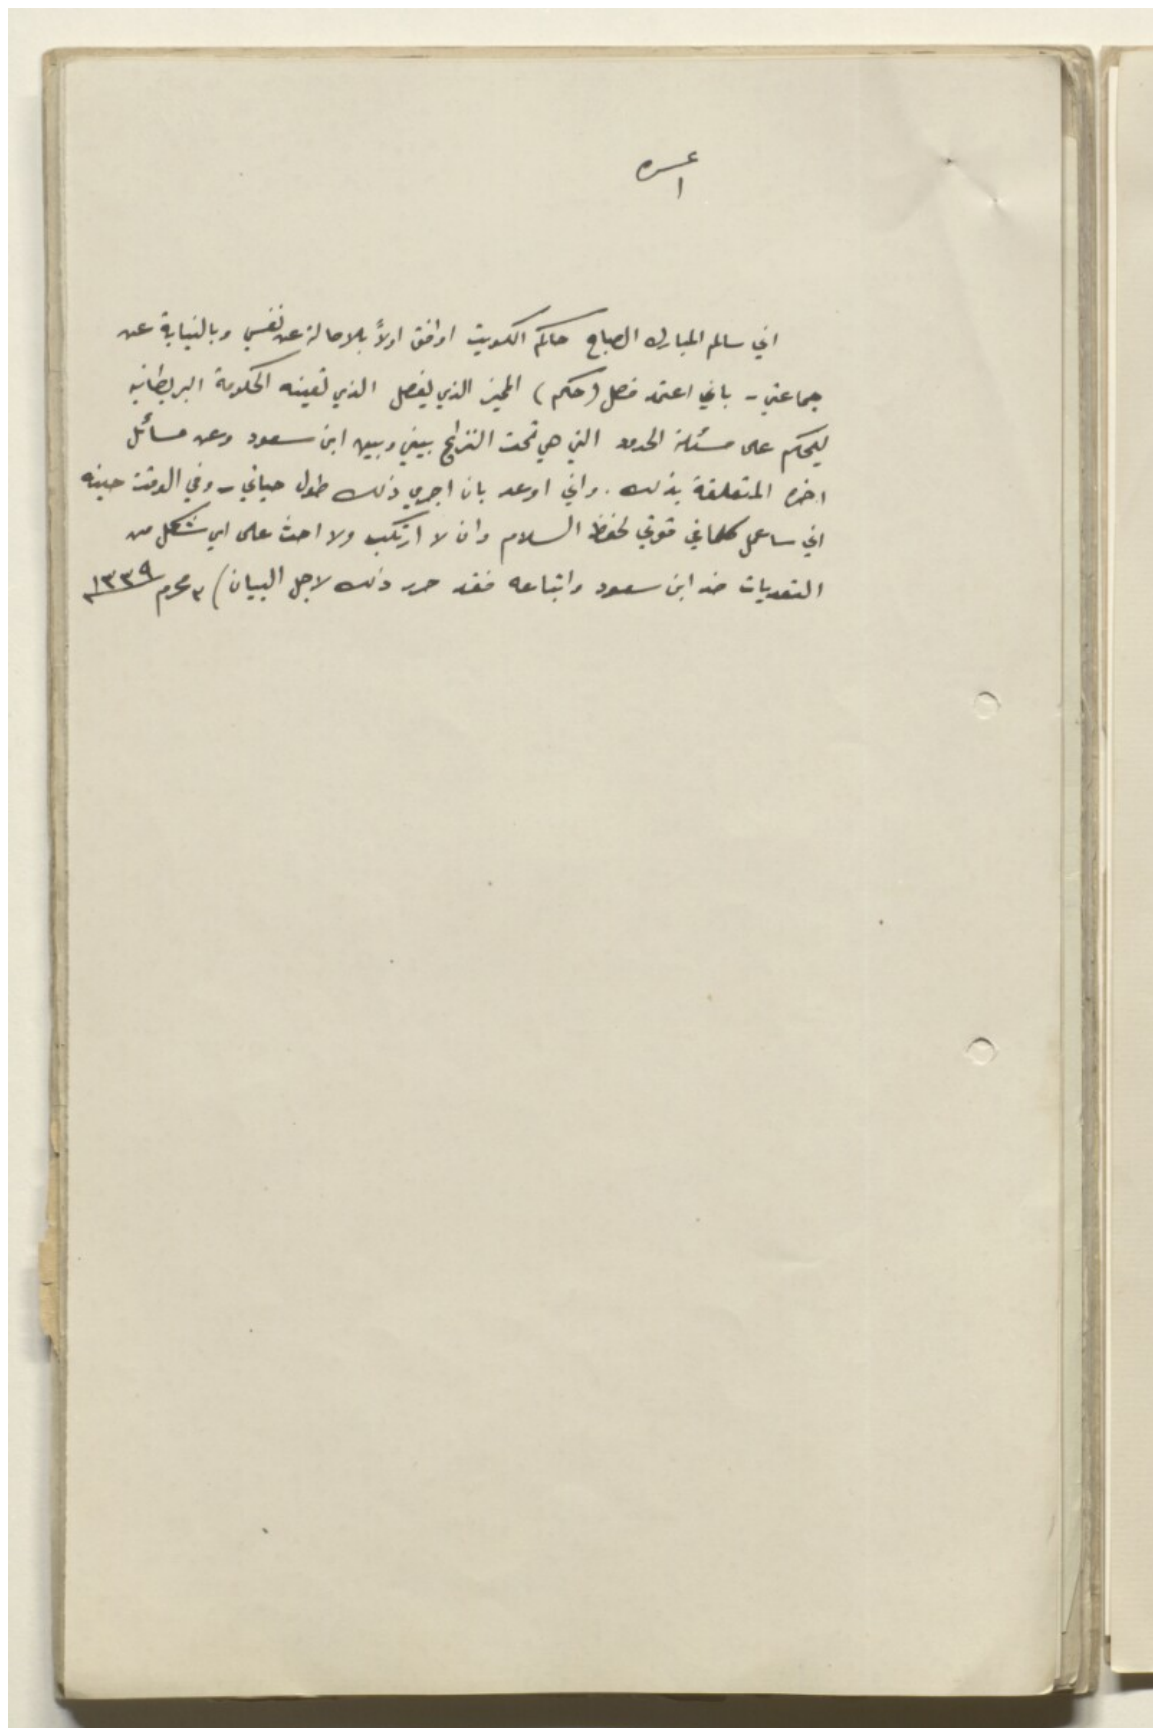 اني سالم المبارك الصباح حاكم الكويت اوافق اولاً بالاصالة عن نفسي وبالنيابة عن
جماعتي - باني اعتمد فصل (حكم) المميز الذي يفصل الذي تعينه الحكومة البريطانيه
ليحكم على مسئلة الحدود التي هي تحت النزاع بيني وبين ابن سعود وعن مسائل
اخره المتعلقة بذلك. واني اوعد بان اجري ذلك طول حياتي - وفي الوقت حينه
اني ساعمل كلما في قوتي لحفظ السلام وان لا ارتكب ولا احث على اي شكل من
التعديات ضد ابن سعود واتباعه فقد حرر ذلك لاجل البيان) ٣ محرم ١٣٣٩